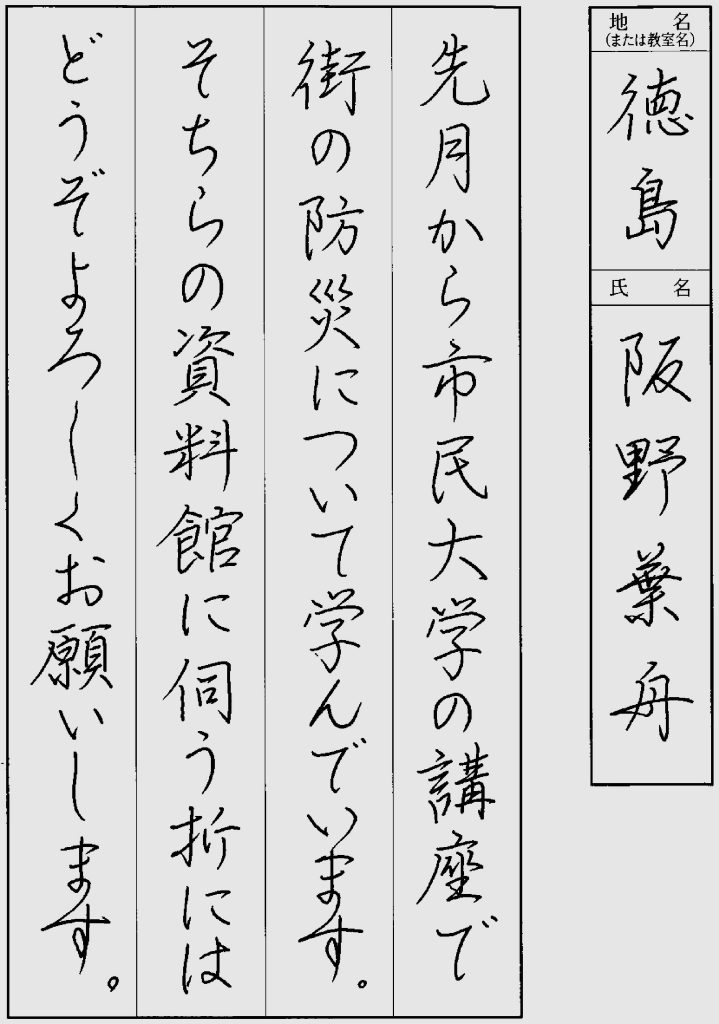 地名
(または教室名)
徳島
氏名
阪野葉舟
先月から市民大学の講座で
街の防災について学んでいます。
そちらの資料館に伺う折には
どうぞよろしくお願いします。